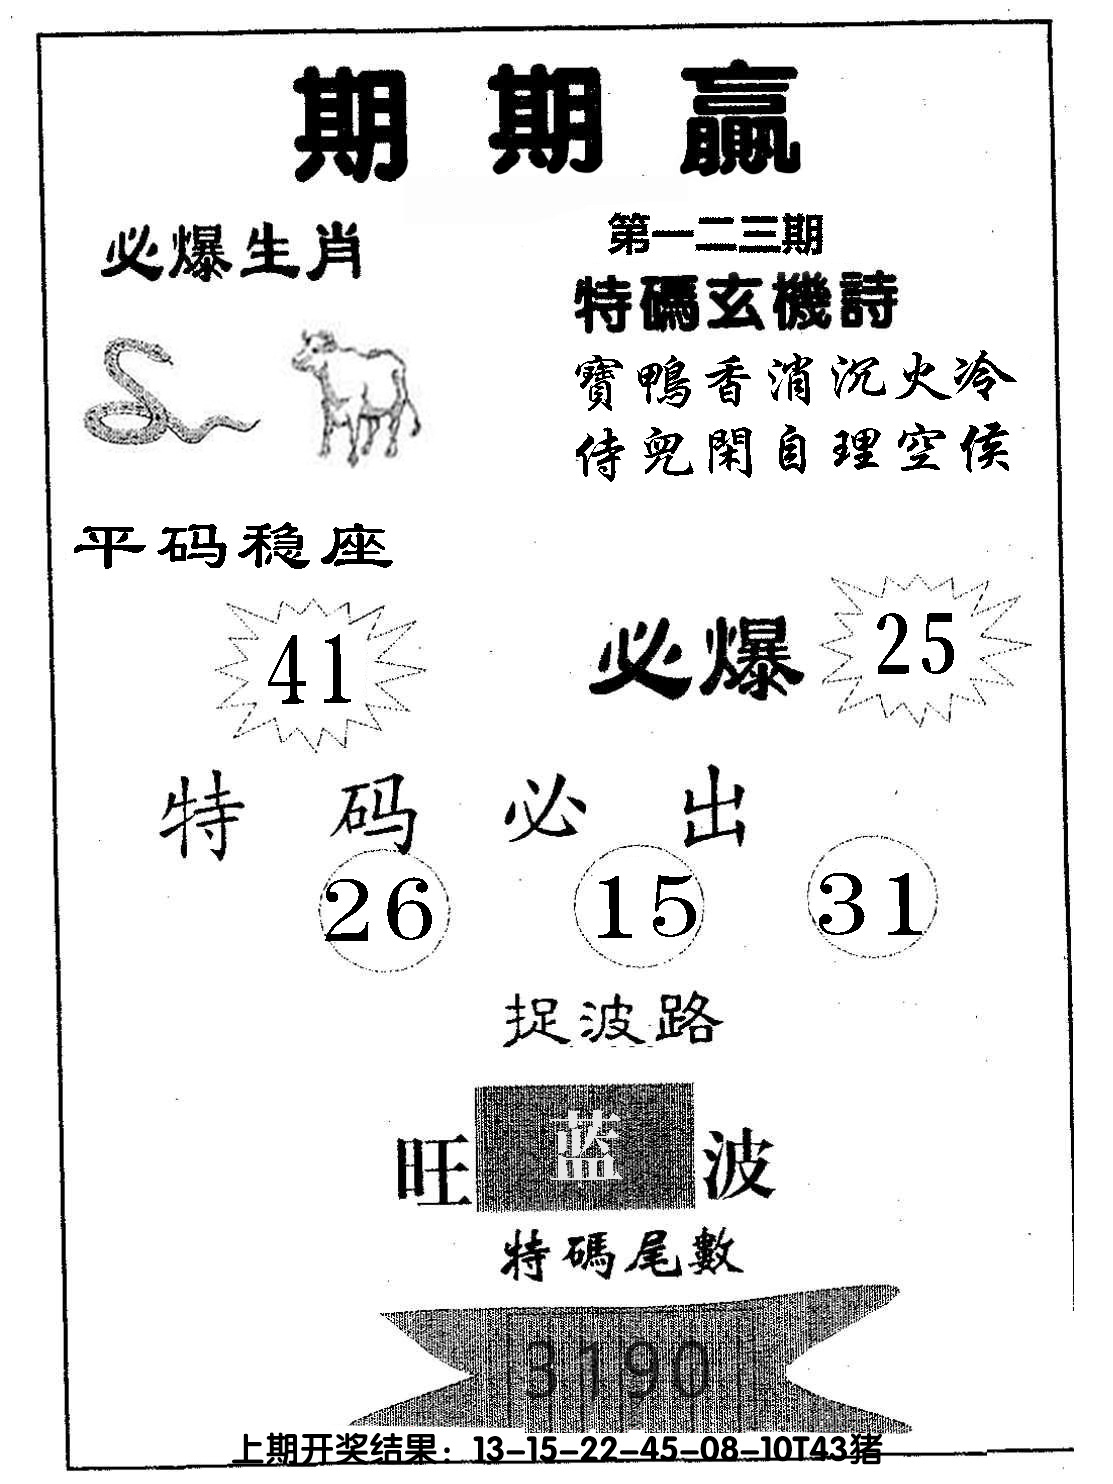 期期贏
必爆生肖
第一二三期
特碼玄機詩
寶鴨香消沉火冷
侍兒閑自理空侯
平码稳座
41
必爆 25
特码必出
26 15 31
捉波路
旺 蓝 波
特碼尾數
3190
上期开奖结果：13-15-22-45-08-10T43猪